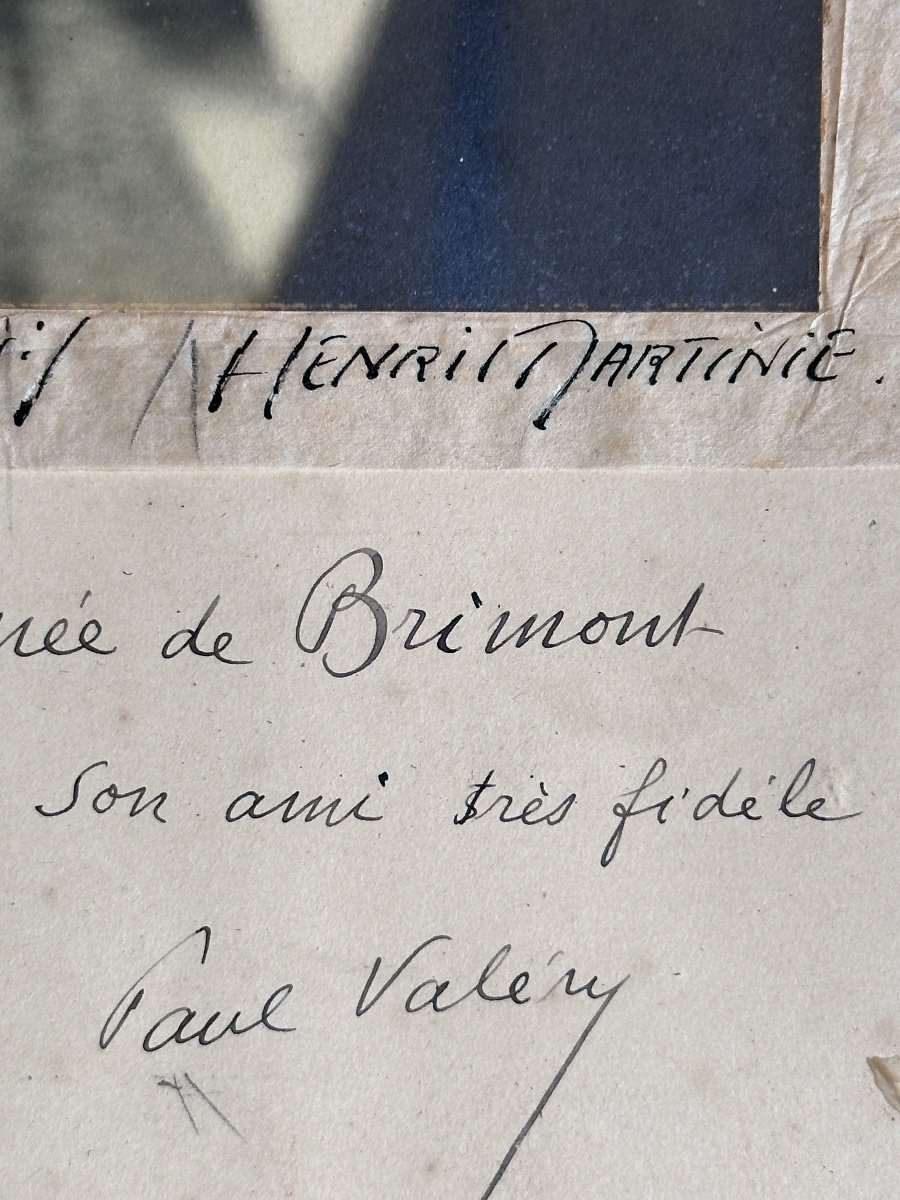 HENRI MARTINIE.
née de Brimont
son ami très fidèle
Paul Valéry